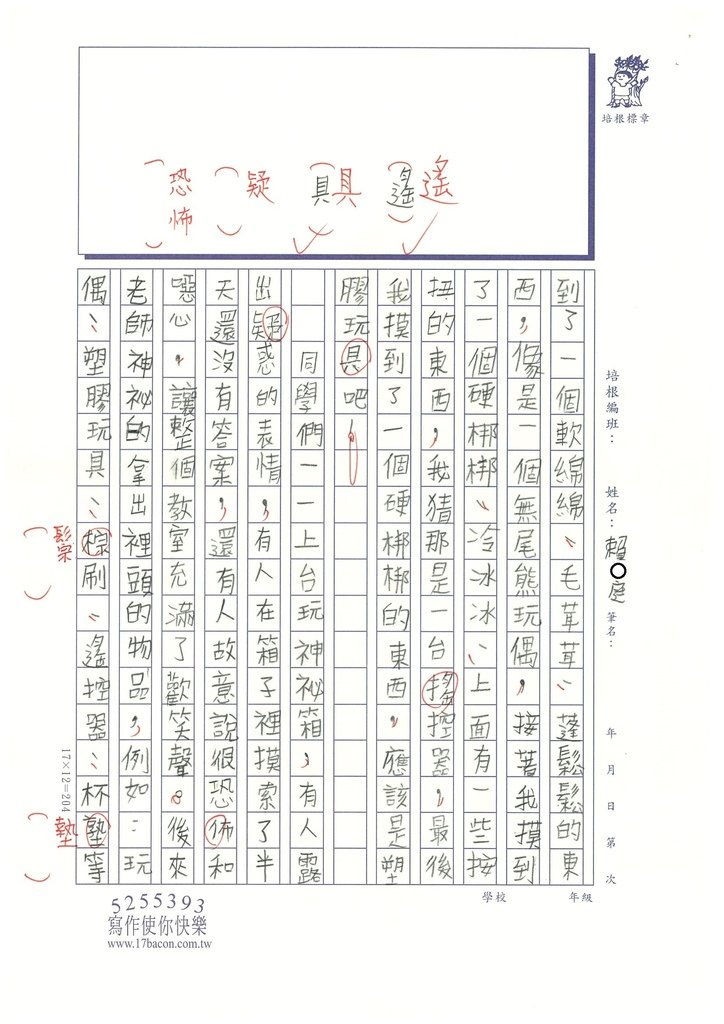 培根標章
遙 遙 具 具 疑 恐怖
培根編班： 姓名：賴○庭 筆名： 年 月 日 第 次
到了一個軟綿綿、毛茸茸、蓬鬆鬆的東
西，像是一個無尾熊玩偶，接著我摸到
了一個硬梆梆、冷冰冰、上面有一些按
扭的東西，我猜那是一台搖控器，最後
我摸到了一個硬梆梆的東西，應該是塑
膠玩具吧！
同學們一一上台玩神祕箱，有人露
出疑惑的表情，有人在箱子裡摸索了半
天還沒有答案，還有人故意說很恐佈和
噁心，讓整個教室充滿了歡笑聲。後來
老師神祕的拿出裡頭的物品，例如：玩
偶、塑膠玩具、棕刷、遙控器、杯墊等
鬃
墊
17×12=204
學校 年級
5255393
寫作使你快樂
www.17bacon.com.tw